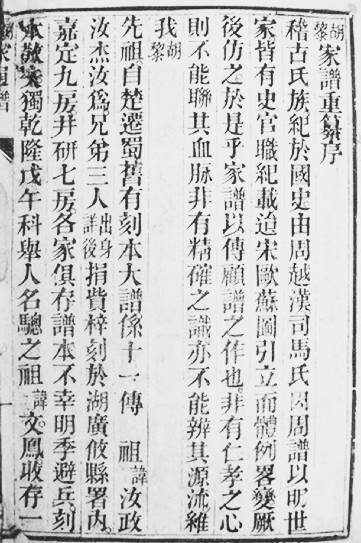 胡黎家譜重纂序
稽古氏族紀於國史由周越漢司馬氏因周譜以明世
家皆有史官職紀載迨宋歐蘇圖引立而體例畧變厥
後仿之於是乎家譜以傳顧譜之作也非有仁孝之心
則不能聯其血脉非有精確之識亦不能辨其源流維
我胡黎
先祖自楚遷蜀舊有刻本大譜係十一傳 祖諱汝政
汝杰汝為兄弟三人出身詳後捐貲梓刻於湖廣攸縣署內
嘉定九房井研七房各家俱存譜本不幸明季避兵刻
本散失獨乾隆戊午科舉人名驄之祖諱文鳳收存一
家 譜